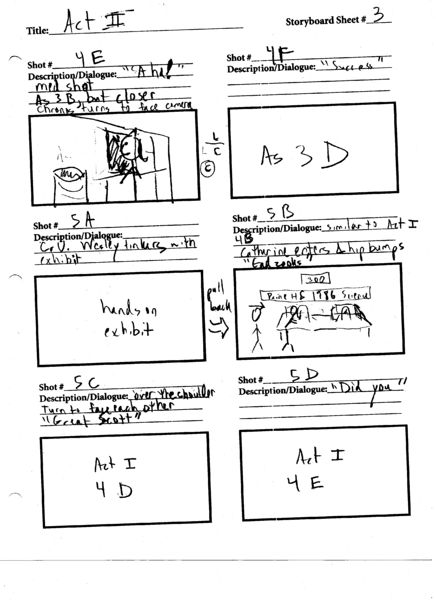 Title: Act II
Storyboard Sheet # 3
Shot # 4 E
Description/Dialogue: "Aha!"
med shot
As 3 B, but closer
Chronos turns to face camera
L
L C
C
Shot # 4F
Description/Dialogue: "Success"
As 3 D
Shot # 5A
Description/Dialogue:
C.U. Wesley tinkers with
exhibit
hands on
exhibit
pull
back
Shot # 5 B
Description/Dialogue: similar to Act I
4B
Catherine enters & hip bumps
300
1986 Science
Shot # 5 C
Description/Dialogue: over the shoulder
Turn to face each other
"Great Scott"
Act I
4 D
Shot # 5 D
Description/Dialogue: "Did you"
Act I
4 E